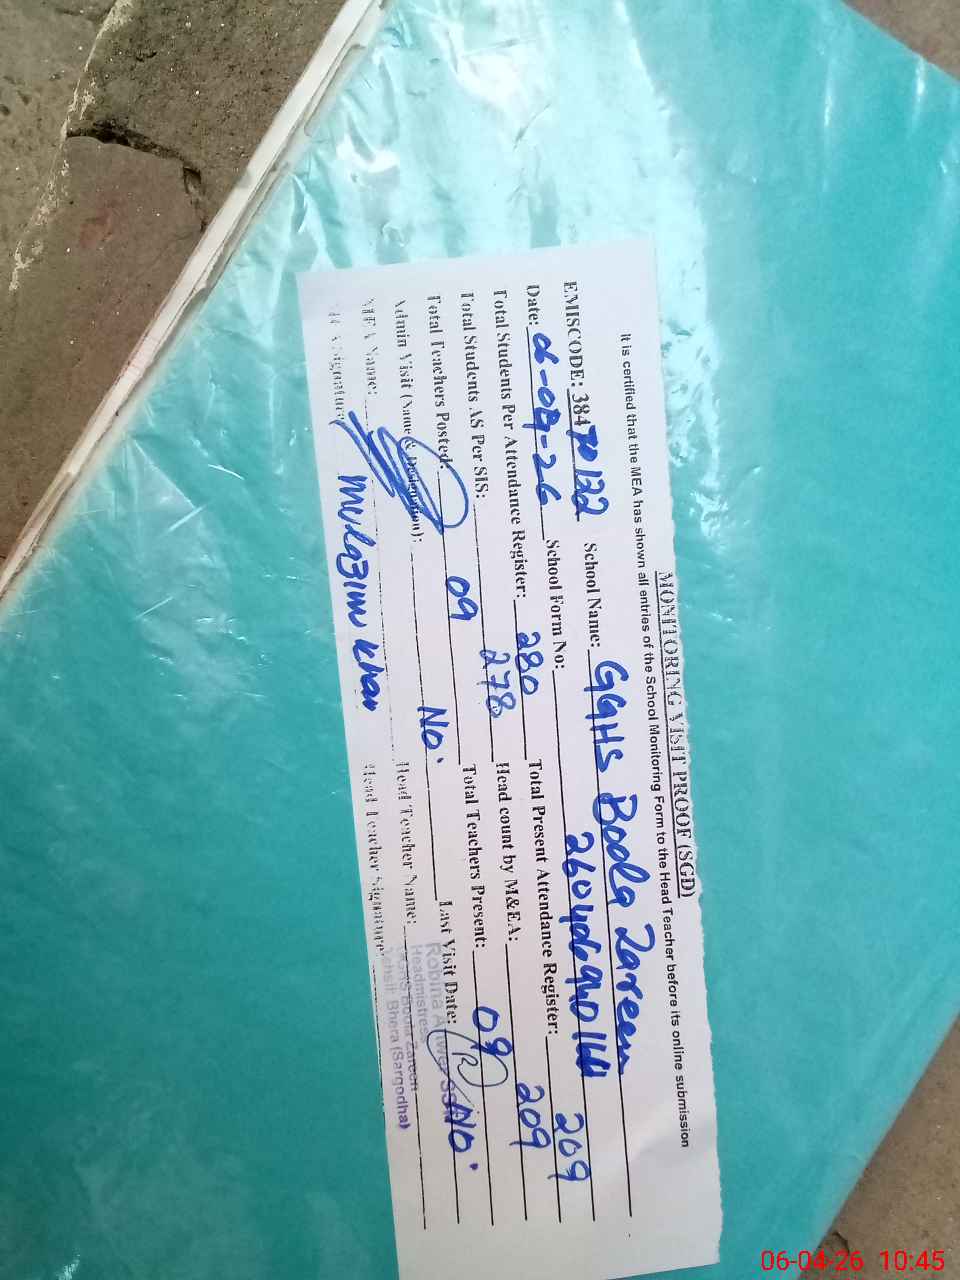 MONITORING VISIT PROOF (SGD)
It is certified that the MEA has shown all entries of the School Monitoring Form to the Head Teacher before its online submission
EMISCODE: 38470132 School Name: GGHS Boola Zareen
Date: 06-04-26 School Form No:
Total Students Per Attendance Register: 280 Total Present Attendance Register: 209
Total Students AS Per SIS: 278 Head count by M&EA: 209
Total Teachers Posted: 09 Total Teachers Present: 09
Admin Visit (Name & Designation): No. Last Visit Date: No.
MEA Name: Mulazim Khan Head Teacher Name:
Signature Head Teacher Signature:
Robina
Headmistress
GGHS Boola Zareen
Tehsil: Bhera (Sargodha)
06-04-26 10:45